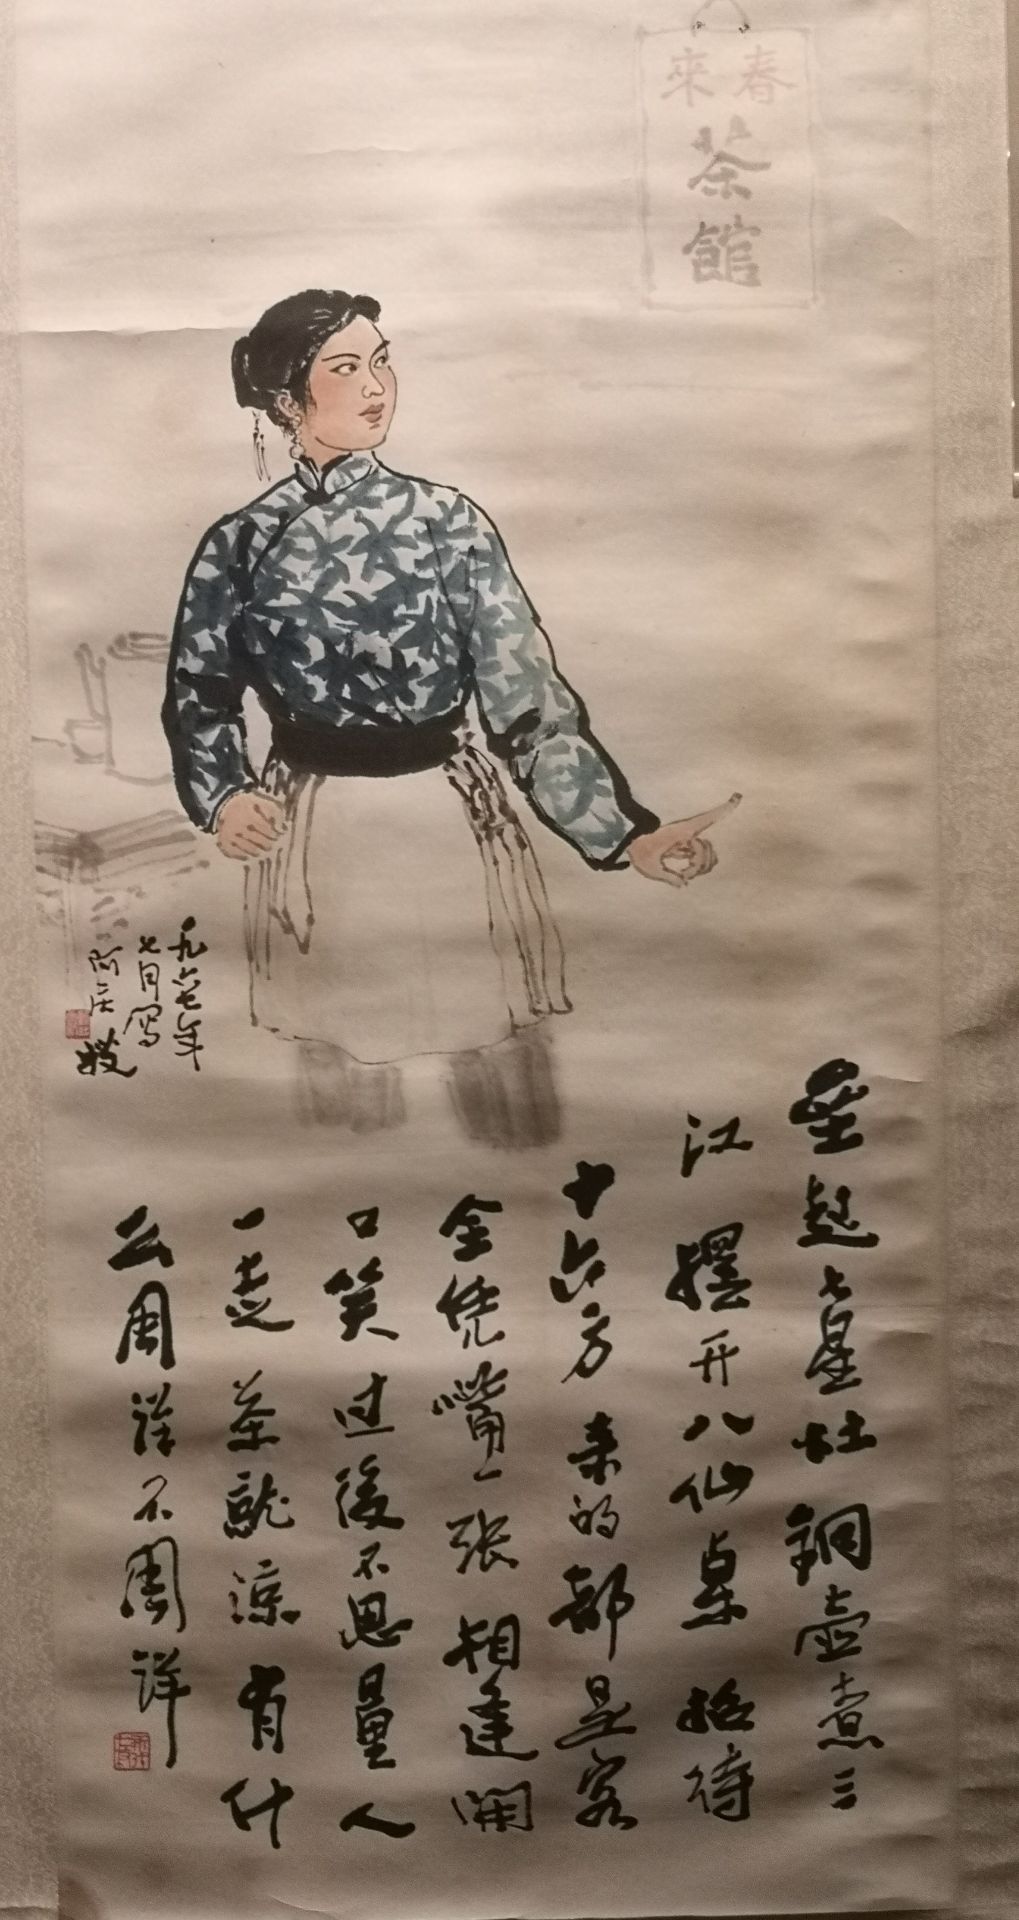 春來
茶
館
壘起七星灶 銅壺煮三
江 擺开八仙桌 招待
十六方 来的都是客
全凭嘴一张 相逢開
口笑 过後不思量 人
一走 茶就凉 有什
么周详不周详
一九六七年
七月写
阿庆嫂